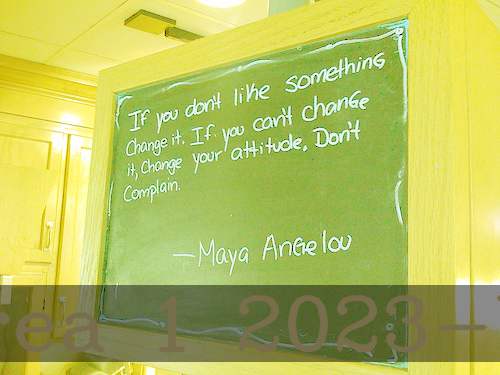 If you don't like something
Change it. If you can't change
it, Change your attitude. Don't
Complain.
—Maya Angelou
rea 1 2023-